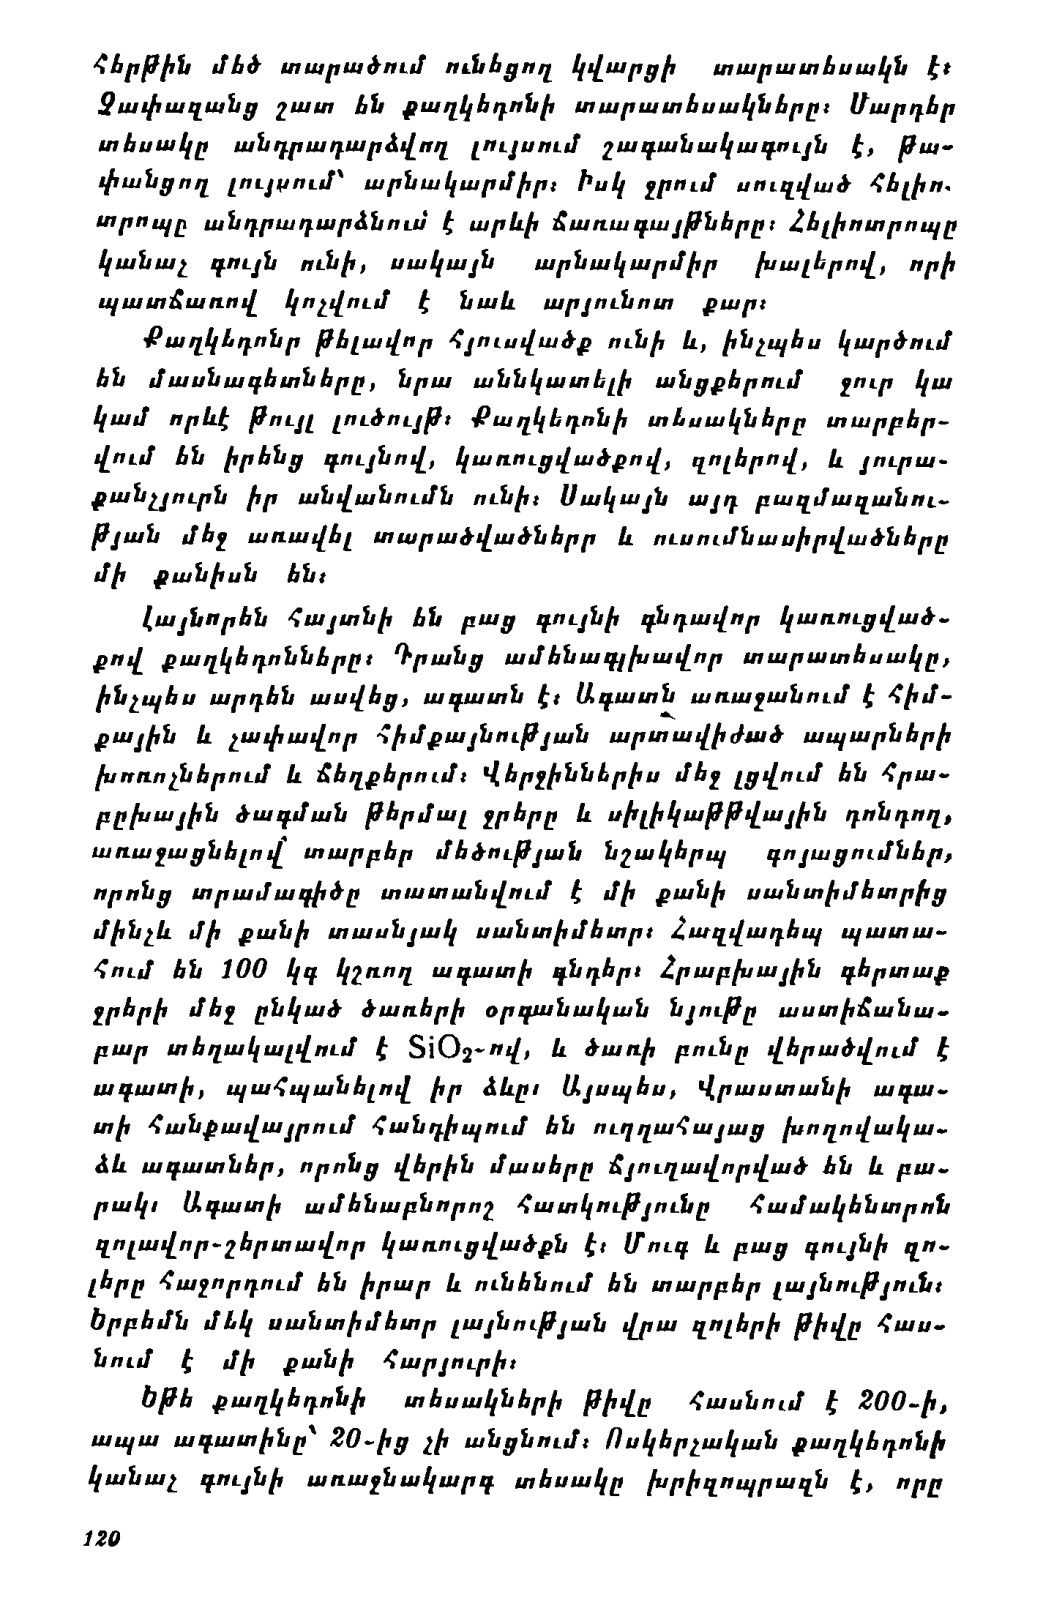 հերթին մեծ տարածում ունեցող կվարցի տարատեսակն է։
Չափազանց շատ են քաղկեդոնի տարատեսակները։ Սարդեր
տեսակը անդրադարձվող լույսում շագանակագույն է, թա-
փանցող լույսում՝ արնակարմիր։ Իսկ ջրում սուզված հելիո-
տրոպը անդրադարձնում է արևի ճառագայթները։ Հելիոտրոպը
կանաչ գույն ունի, սակայն արնակարմիր խալերով, որի
պատճառով կոչվում է նաև արյունոտ քար։
Քաղկեդոնր թելավոր հյուսվածք ունի և, ինչպես կարծում
են մասնագետները, նրա աննկատելի անցքերում ջուր կա
կամ որևէ թույլ լուծույթ։ Քաղկեդոնի տեսակները տարբեր-
վում են իրենց գույնով, կառուցվածքով, զոլերով, և յուրա-
քանչյուրն իր անվանումն ունի։ Սակայն այդ բազմազանու-
թյան մեջ առավել տարածվածներր և ուսումնասիրվածները
մի քանիսն են։
Լայնորեն հայտնի են բաց գույնի գնդավոր կառուցված-
քով քաղկեդոնները։ Դրանց ամենագլխավոր տարատեսակը,
ինչպես արդեն ասվեց, ագատն է։ Ագատն առաջանում է հիմ-
քային և չափավոր հիմքայնության արտավիժած ապարների
խոռոչներում և ճեղքերում։ Վերջիններիս մեջ լցվում են հրա-
բըխային ծագման թերմալ ջրերը և սիլիկաթթվային դոնդող,
առաջացնելով տարբեր մեծության նշակերպ գոյացումներ,
որոնց տրամագիծը տատանվում է մի քանի սանտիմետրից
մինչև մի քանի տասնյակ սանտիմետր։ Հազվադեպ պատա-
հում են 100 կգ կշռող ագատի գնդեր։ Հրաբխային գերտաք
ջրերի մեջ ընկած ծառերի օրգանական նյութը աստիճանա-
բար տեղակալվում է SiO₂-ով, և ծառի բունը վերածվում է
ագատի, պահպանելով իր ձևը։ Այսպես, Վրաստանի ագա-
տի հանքավայրում հանդիպում են ուղղահայաց խողովակա-
ձև ագատներ, որոնց վերին մասերը ճյուղավորված են և բա-
րակ։ Ագատի ամենաբնորոշ հատկությունը համակենտրոն
զոլավոր-շերտավոր կառուցվածքն է։ Մուգ և բաց գույնի զո-
լերը հաջորդում են իրար և ունենում են տարբեր լայնություն։
Երբեմն մեկ սանտիմետր լայնության վրա զոլերի թիվը հաս-
նում է մի քանի հարյուրի։
Եթե քաղկեդոնի տեսակների թիվը հասնում է 200-ի,
ապա ագատինը՝ 20-ից չի անցնում։ Ոսկերչական քաղկեդոնի
կանաչ գույնի առաջնակարգ տեսակը խրիզոպրազն է, որը
120